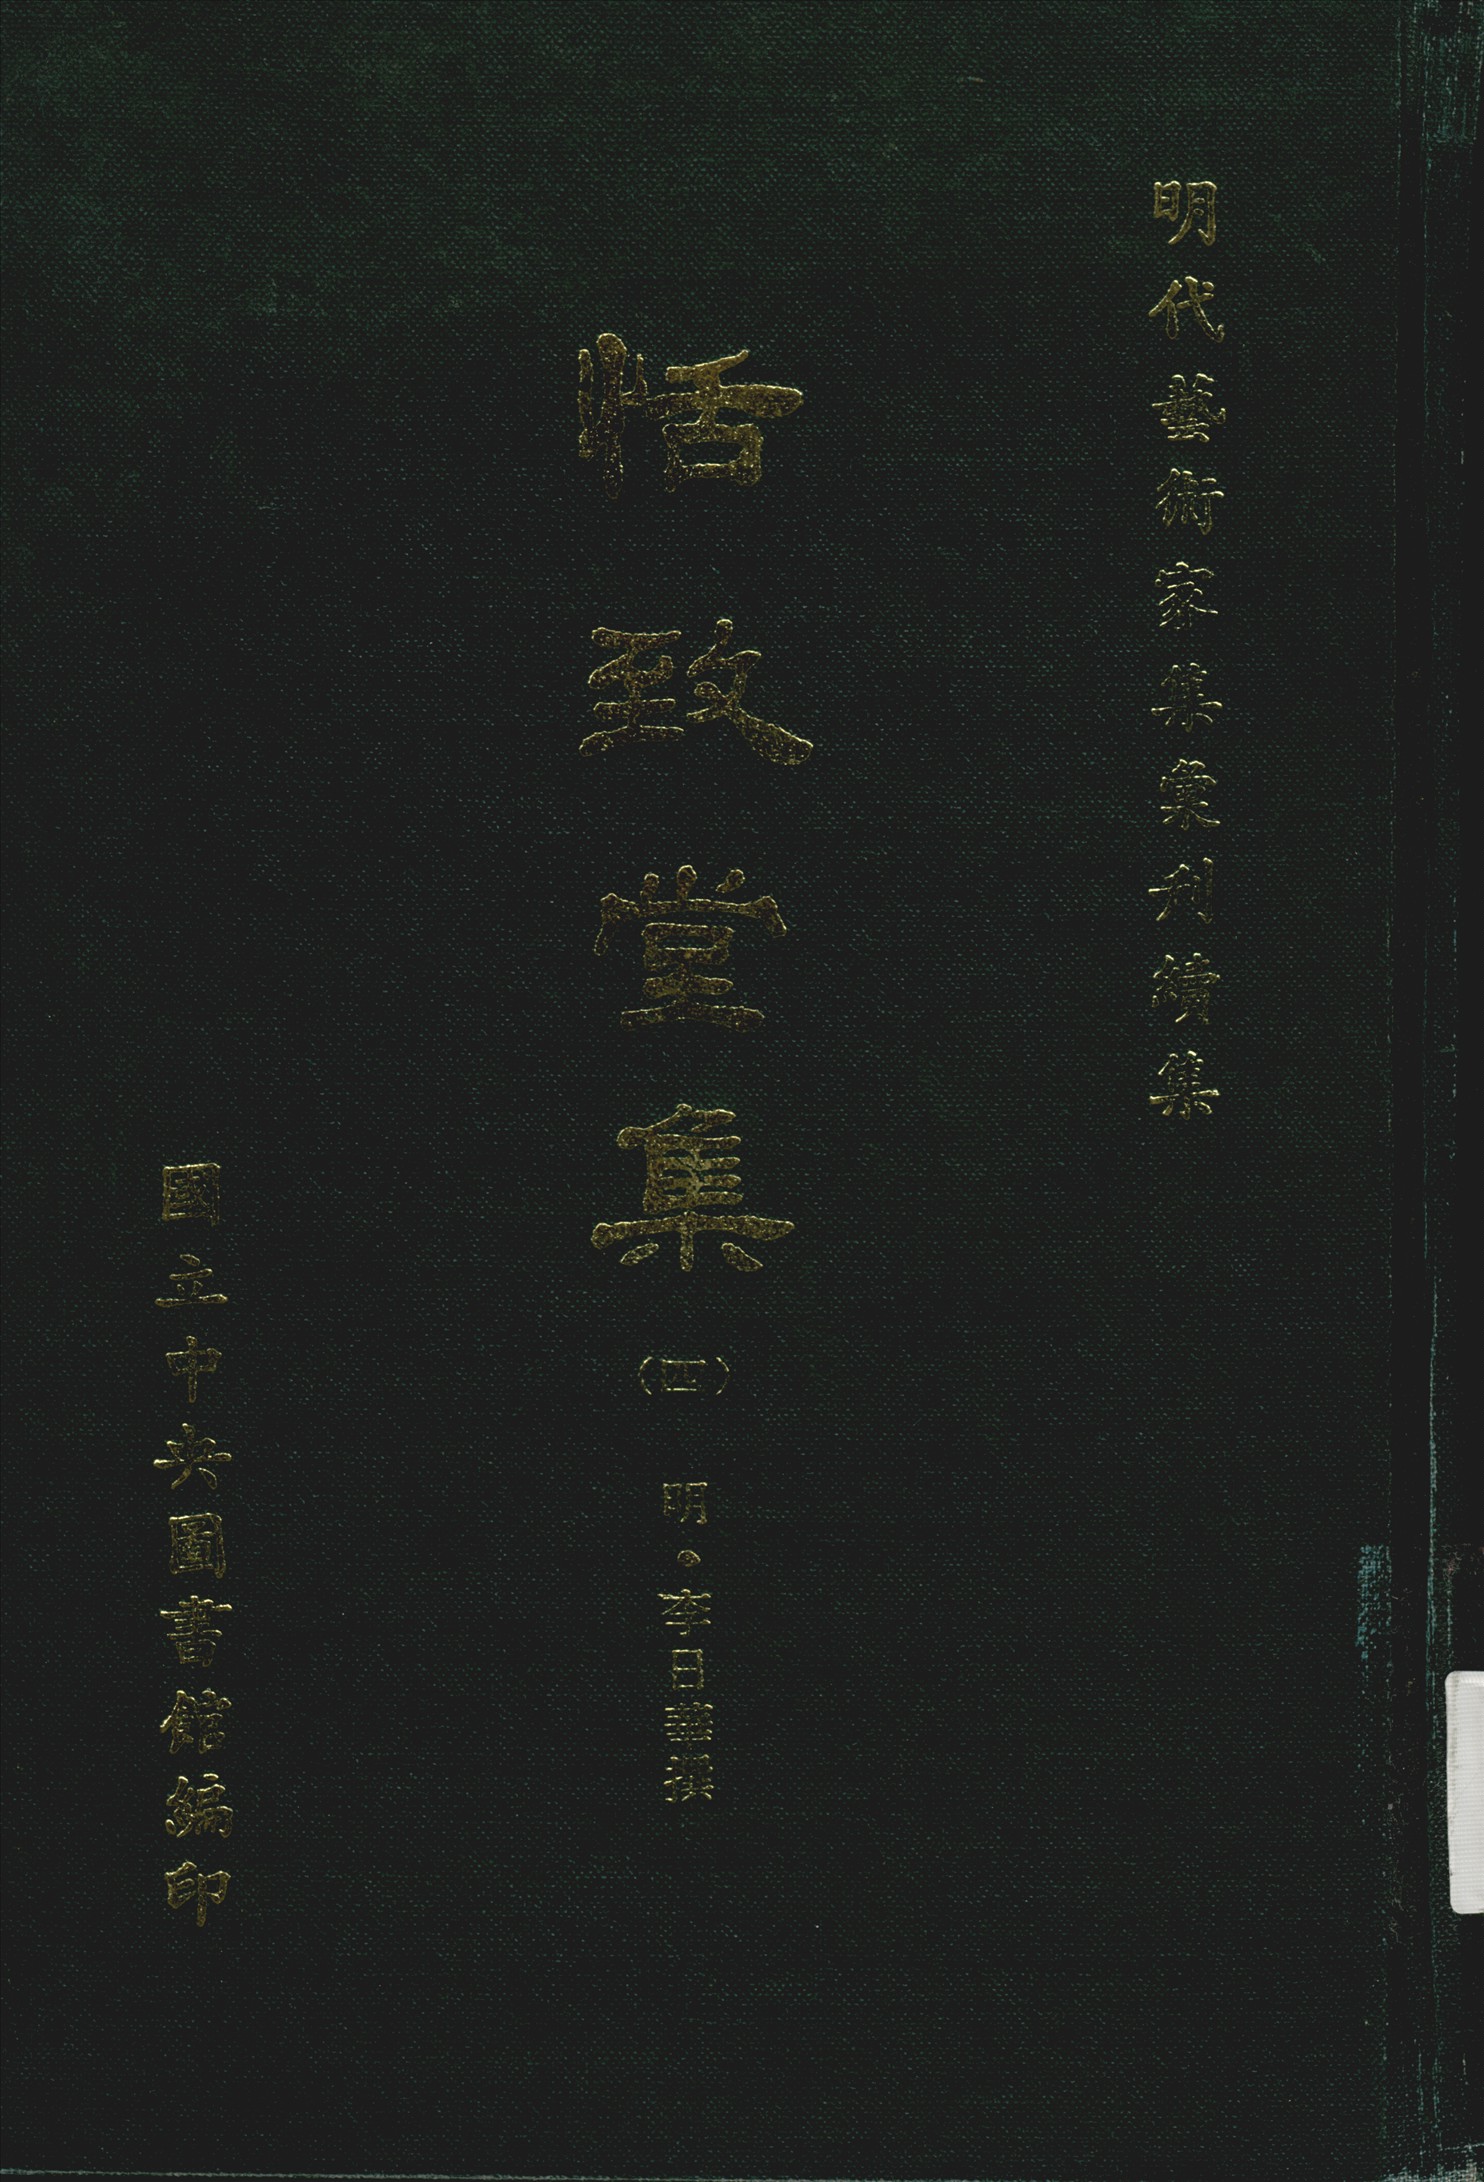 明代藝術家集彙刊續集
恬致堂集
(四)
明•李日華撰
國立中央圖書館編印